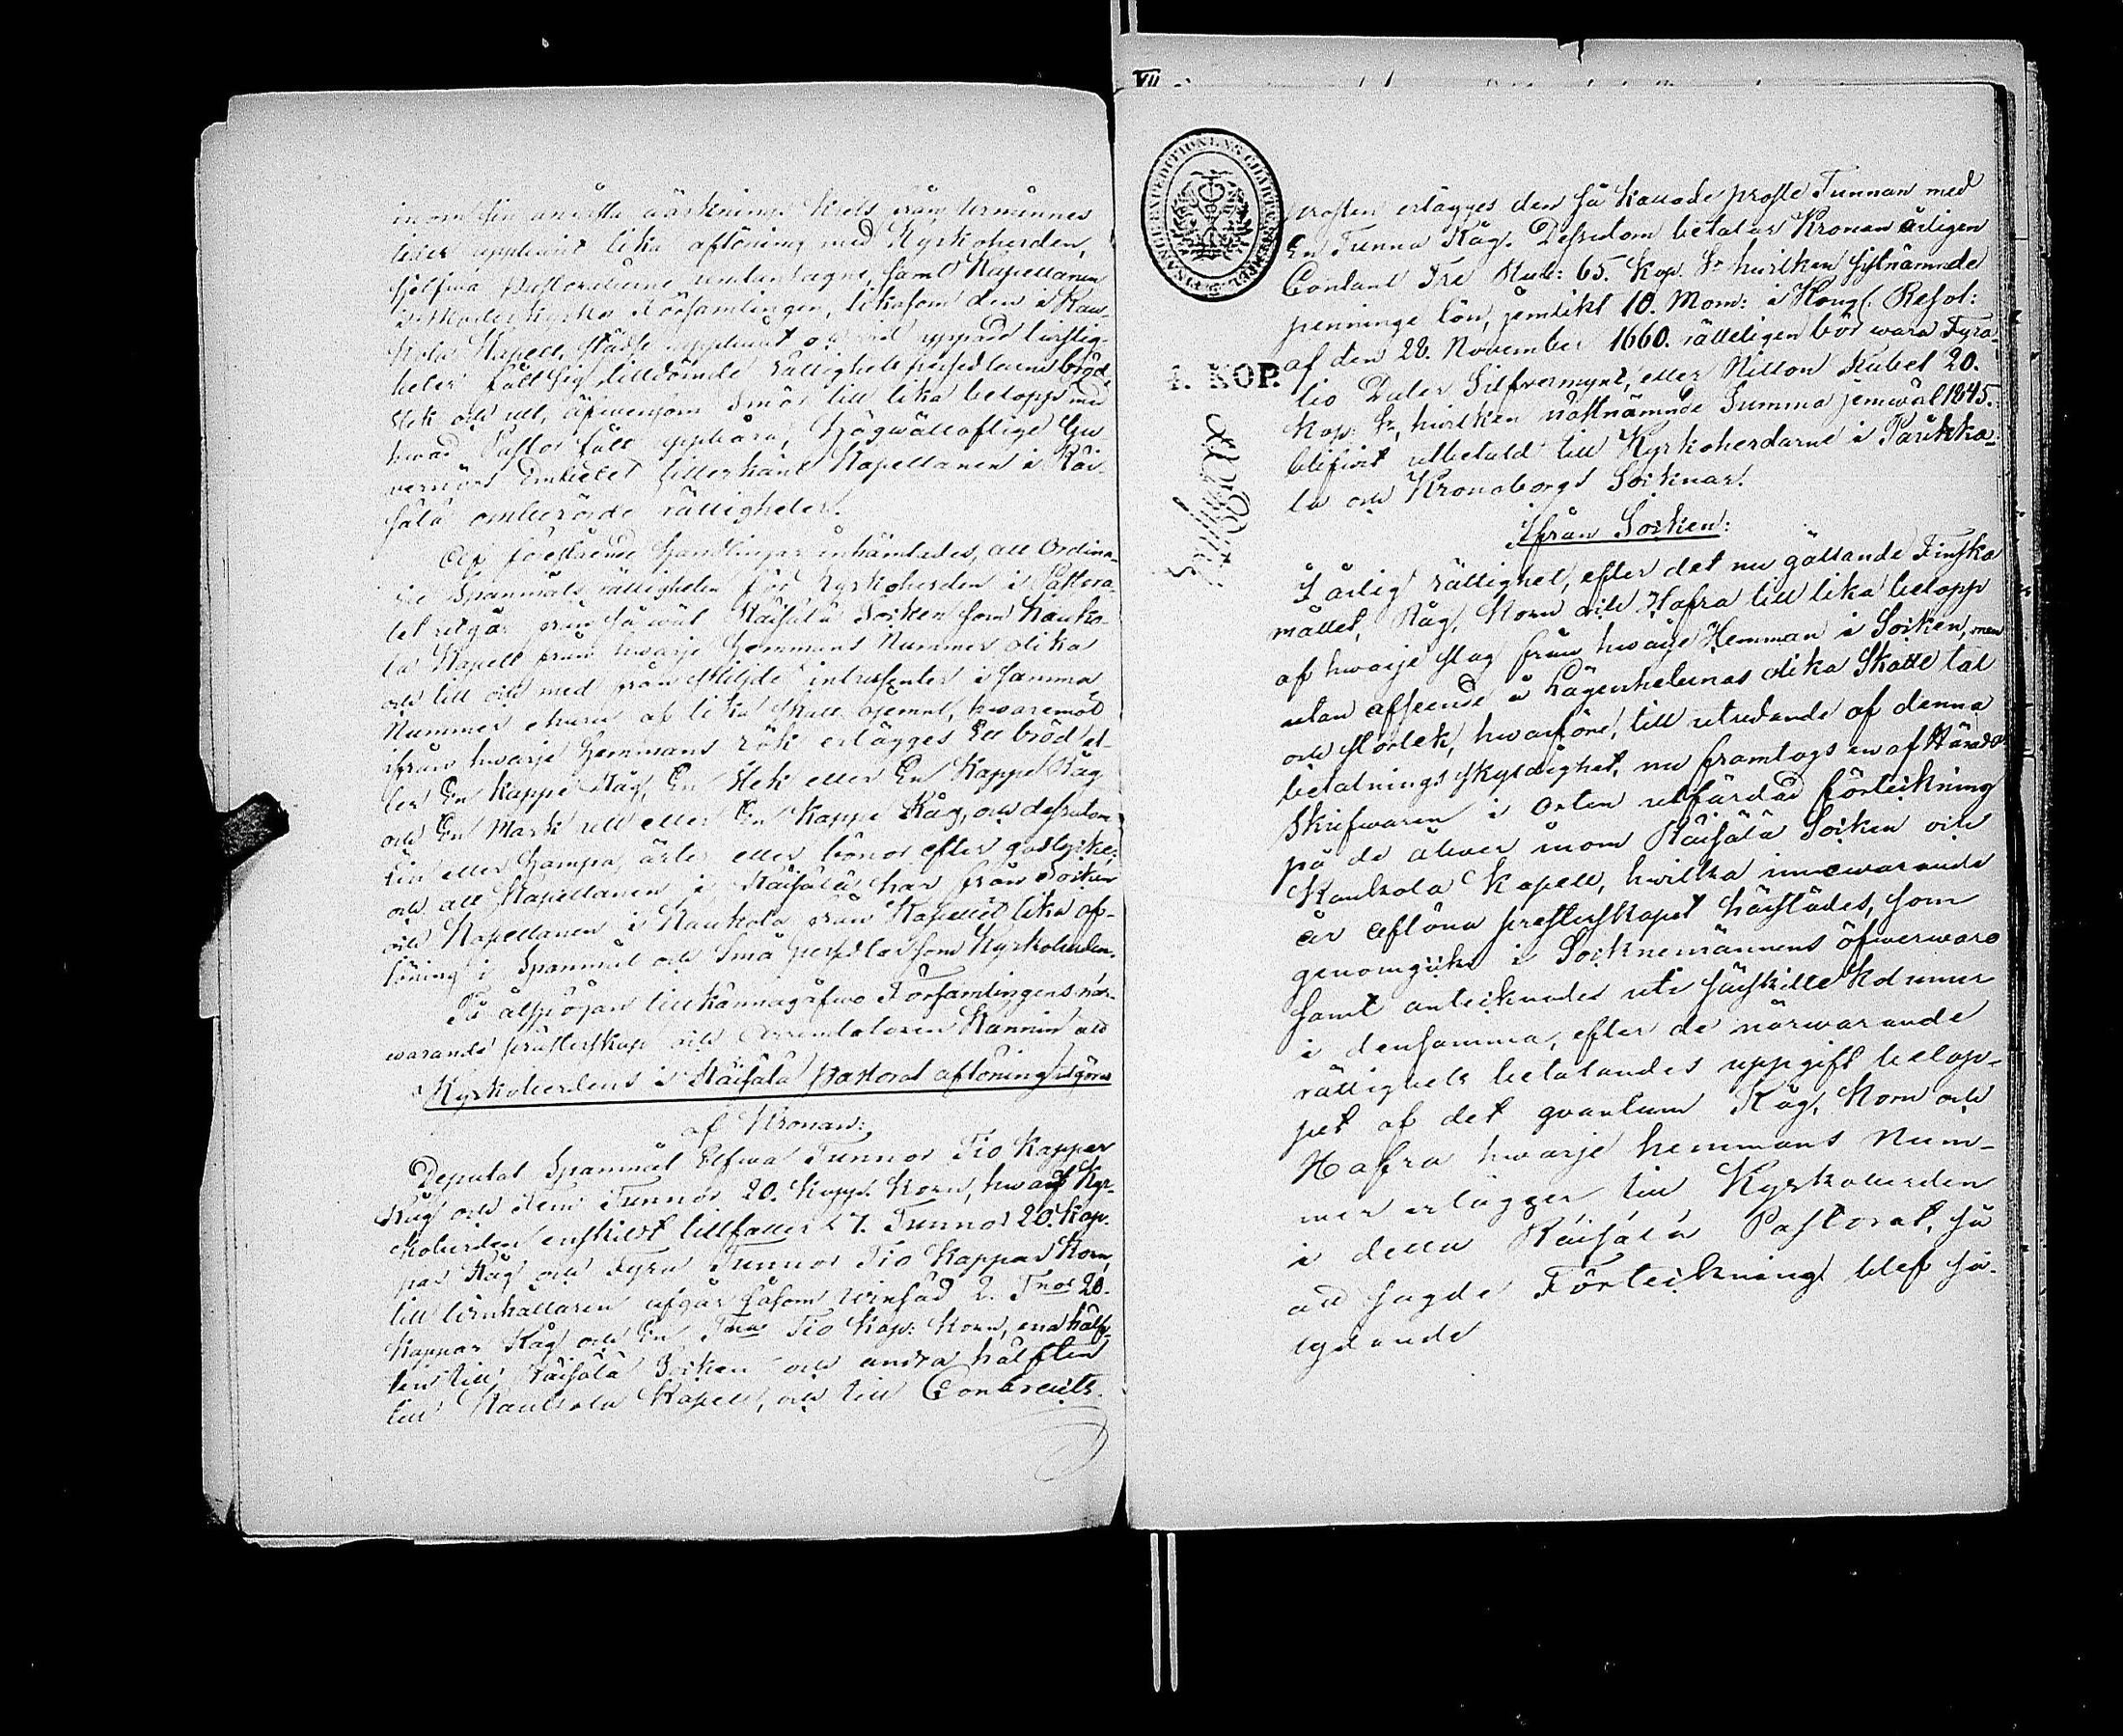 inom sin
uppburit lika aflöning med Kyrkoherden,
sjelfwa Pastoralierne undantagne, samt Kapellanen
Moderkyrko Församlingen, likasom den i Kau-
kola Kapell, städse uppburit och wid uppkom twistig-
heter fått sig tilldömde rättighetspersedlarne bröd,
stek och ull, äfwensom Smör till lika belopp med
hwad Pastor fått uppbära, Högwälloflige Gu
vernörs Embetet tillerkänt Kapellanen i Räi-
sälä omberörde rättigheter.
Af föestående Handlingar inhämtades, att Ordina-
rie Spannmåls rättigheten för Kyrkoherden i Pastora-
tet utgår från så wäl Räisälä Socken som Kauko-
la Kapell från hwarje Hemmans Nummer olika
och till och med från skiljde intressenter i samma
Nummer ehuru af lika skatt ojemnt, hwaremot
ifrån hwarje Hemmans rök erlägges Ett bröd el-
ler En Kappe Råg, En Stek eller En Kappe Råg
och En Mark ull eller En Kappe Råg, och dessutom
Lin eller Hampa, ärter eller bönor efter godtycke;
och att Kapellanen i Räisälä har från Socken
och Kapellanen i Kaukola från Kapellet lika af-
löning i Spannmål och Små persedlar som Kyrkoherden.
På åtspörjan tillkännagåfwo Församlingens när-
warande presterskap och Arrendatoren Hannin att
Kyrkoherdens i Räisälä Pastorat aflöning utgöres
af Kronan:
Deputat Spannmål Elfwa Tunnor Tio Kappar
Råg och Fem Tunnor 20. Kapp. Korn, hwaraf Kyr-
koherden enskildt tillfaller 7. Tunnor 20. Kap-
par Råg och Fyra Tunnor Tio Kappar Korn,
till winhållaren afgår såsom winsäd 2. Tnor 20.
Kappar Råg och En Tna Tio Kap: Korn, ena hälf-
ten till Räisälä Socken och andra hälften
till Kaukola Kapell, och till Contracts-
VII
prosten erlägges den så kallade proste Tunnan med
En Tunna Råg. Dessutom betalar Kronan årligen
Contant Tre Rub: 65. Kop. Sr hwilken sistnämnde
penninge lön, jemlikt 10. Mom: i Kongl. Resol:
af den 28. November 1660. rätteligen bör wara Fyra-
tio Daler Silfwermynt, eller Nitton Rubel 20.
Kop: Sr, hwilken nästnämnde Summa jemwäl 1845.
blifwit utbetald till Kyrkoherdarne i Parikka-
la och Kronoborgs Socknar.
4. KOP.
Ifrån Socken:
I årlig rättighet, efter det nu gällande Finska
måttet, Råg, Korn och Hafra till lika belopp
af hwarje slag från hwarje Hemman i Socken, men
utan afseende å Lägenheternas olika Skatte tal
och storlek, hwarföre, till utredande af denna
betalningsskyldighet, nu framtogs en af Härads-
skrifwaren i orten utfärdad förteckning
på de åboer inom Räisälä Socken och
Kaukola Kapell, hwilka innewarande
år aflöna presterskapet härstädes, som
genomgicks i Socknemännens öfwerwaro
samt antecknades uti särskilte Kolumner
i densamma, efter de närwarande
rättighets betalandes uppgift belop-
pet af det qvantum Råg, Korn och
Hafra hwarje hemmans Num-
mer erlägger till Kyrkoherden
i detta Räisälä Pastorat, så
att sagde Förteckning blef så-
lydande